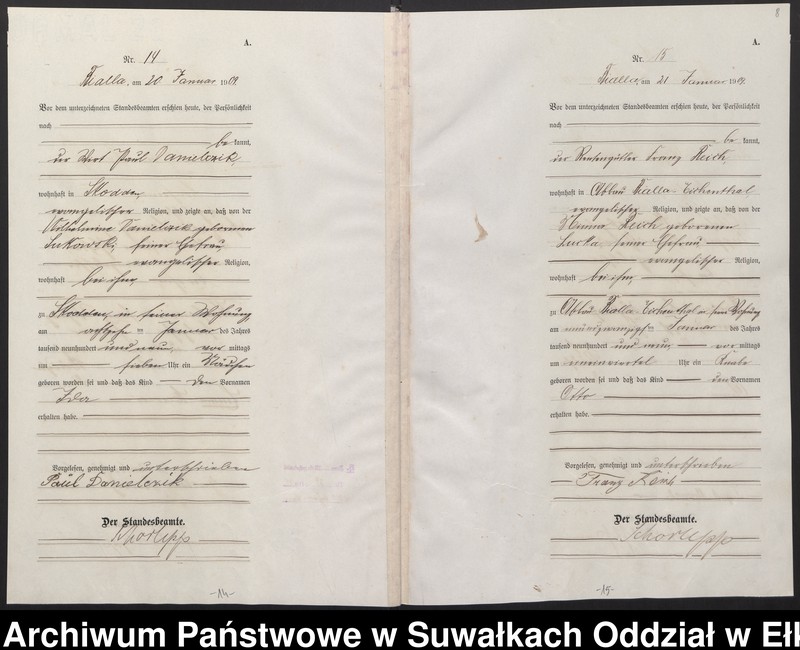 A.
Nr. 14
Kalla, am 20 Januar 1909.
Vor dem unterzeichneten Standesbeamten erschien heute, der Persönlichkeit
nach
be kannt,
der Wirt Paul Danielczik
wohnhaft in Skodden
evangelischer Religion, und zeigte an, daß von der
Wilhelmine Danielczik geborenen
seiner Ehefrau
evangelischer Religion,
wohnhaft bei ihm
zu Skodden, in seiner Wohnung
am achtzehn ten Januar des Jahres
tausend neunhundert und neun, vor mittags
um sieben Uhr ein Mädchen
geboren worden sei und daß das Kind den Vornamen
Ida
erhalten habe.
Vorgelesen, genehmigt und unterschrieben
Paul Danielczik
Der Standesbeamte.
-14-
8
A.
Nr. 15
Kalla, am 21 Januar 1909.
Vor dem unterzeichneten Standesbeamten erschien heute, der Persönlichkeit
nach
be kannt,
der Rentengütler Franz Reich
wohnhaft in Abbau Kalla-
evangelischer Religion, und zeigte an, daß von der
Reich geborenen
seiner Ehefrau,
evangelischer Religion,
wohnhaft bei ihm
zu Abbau Kalla- in seiner Wohnung
am Januar des Jahres
tausend neunhundert und neun, vor mittags
um Uhr ein Knabe
geboren worden sei und daß das Kind den Vornamen
Otto
erhalten habe.
Vorgelesen, genehmigt und unterschrieben
Franz Reich
Der Standesbeamte.
-15-
Archiwum Państwowe w Suwałkach Oddział w Ełk